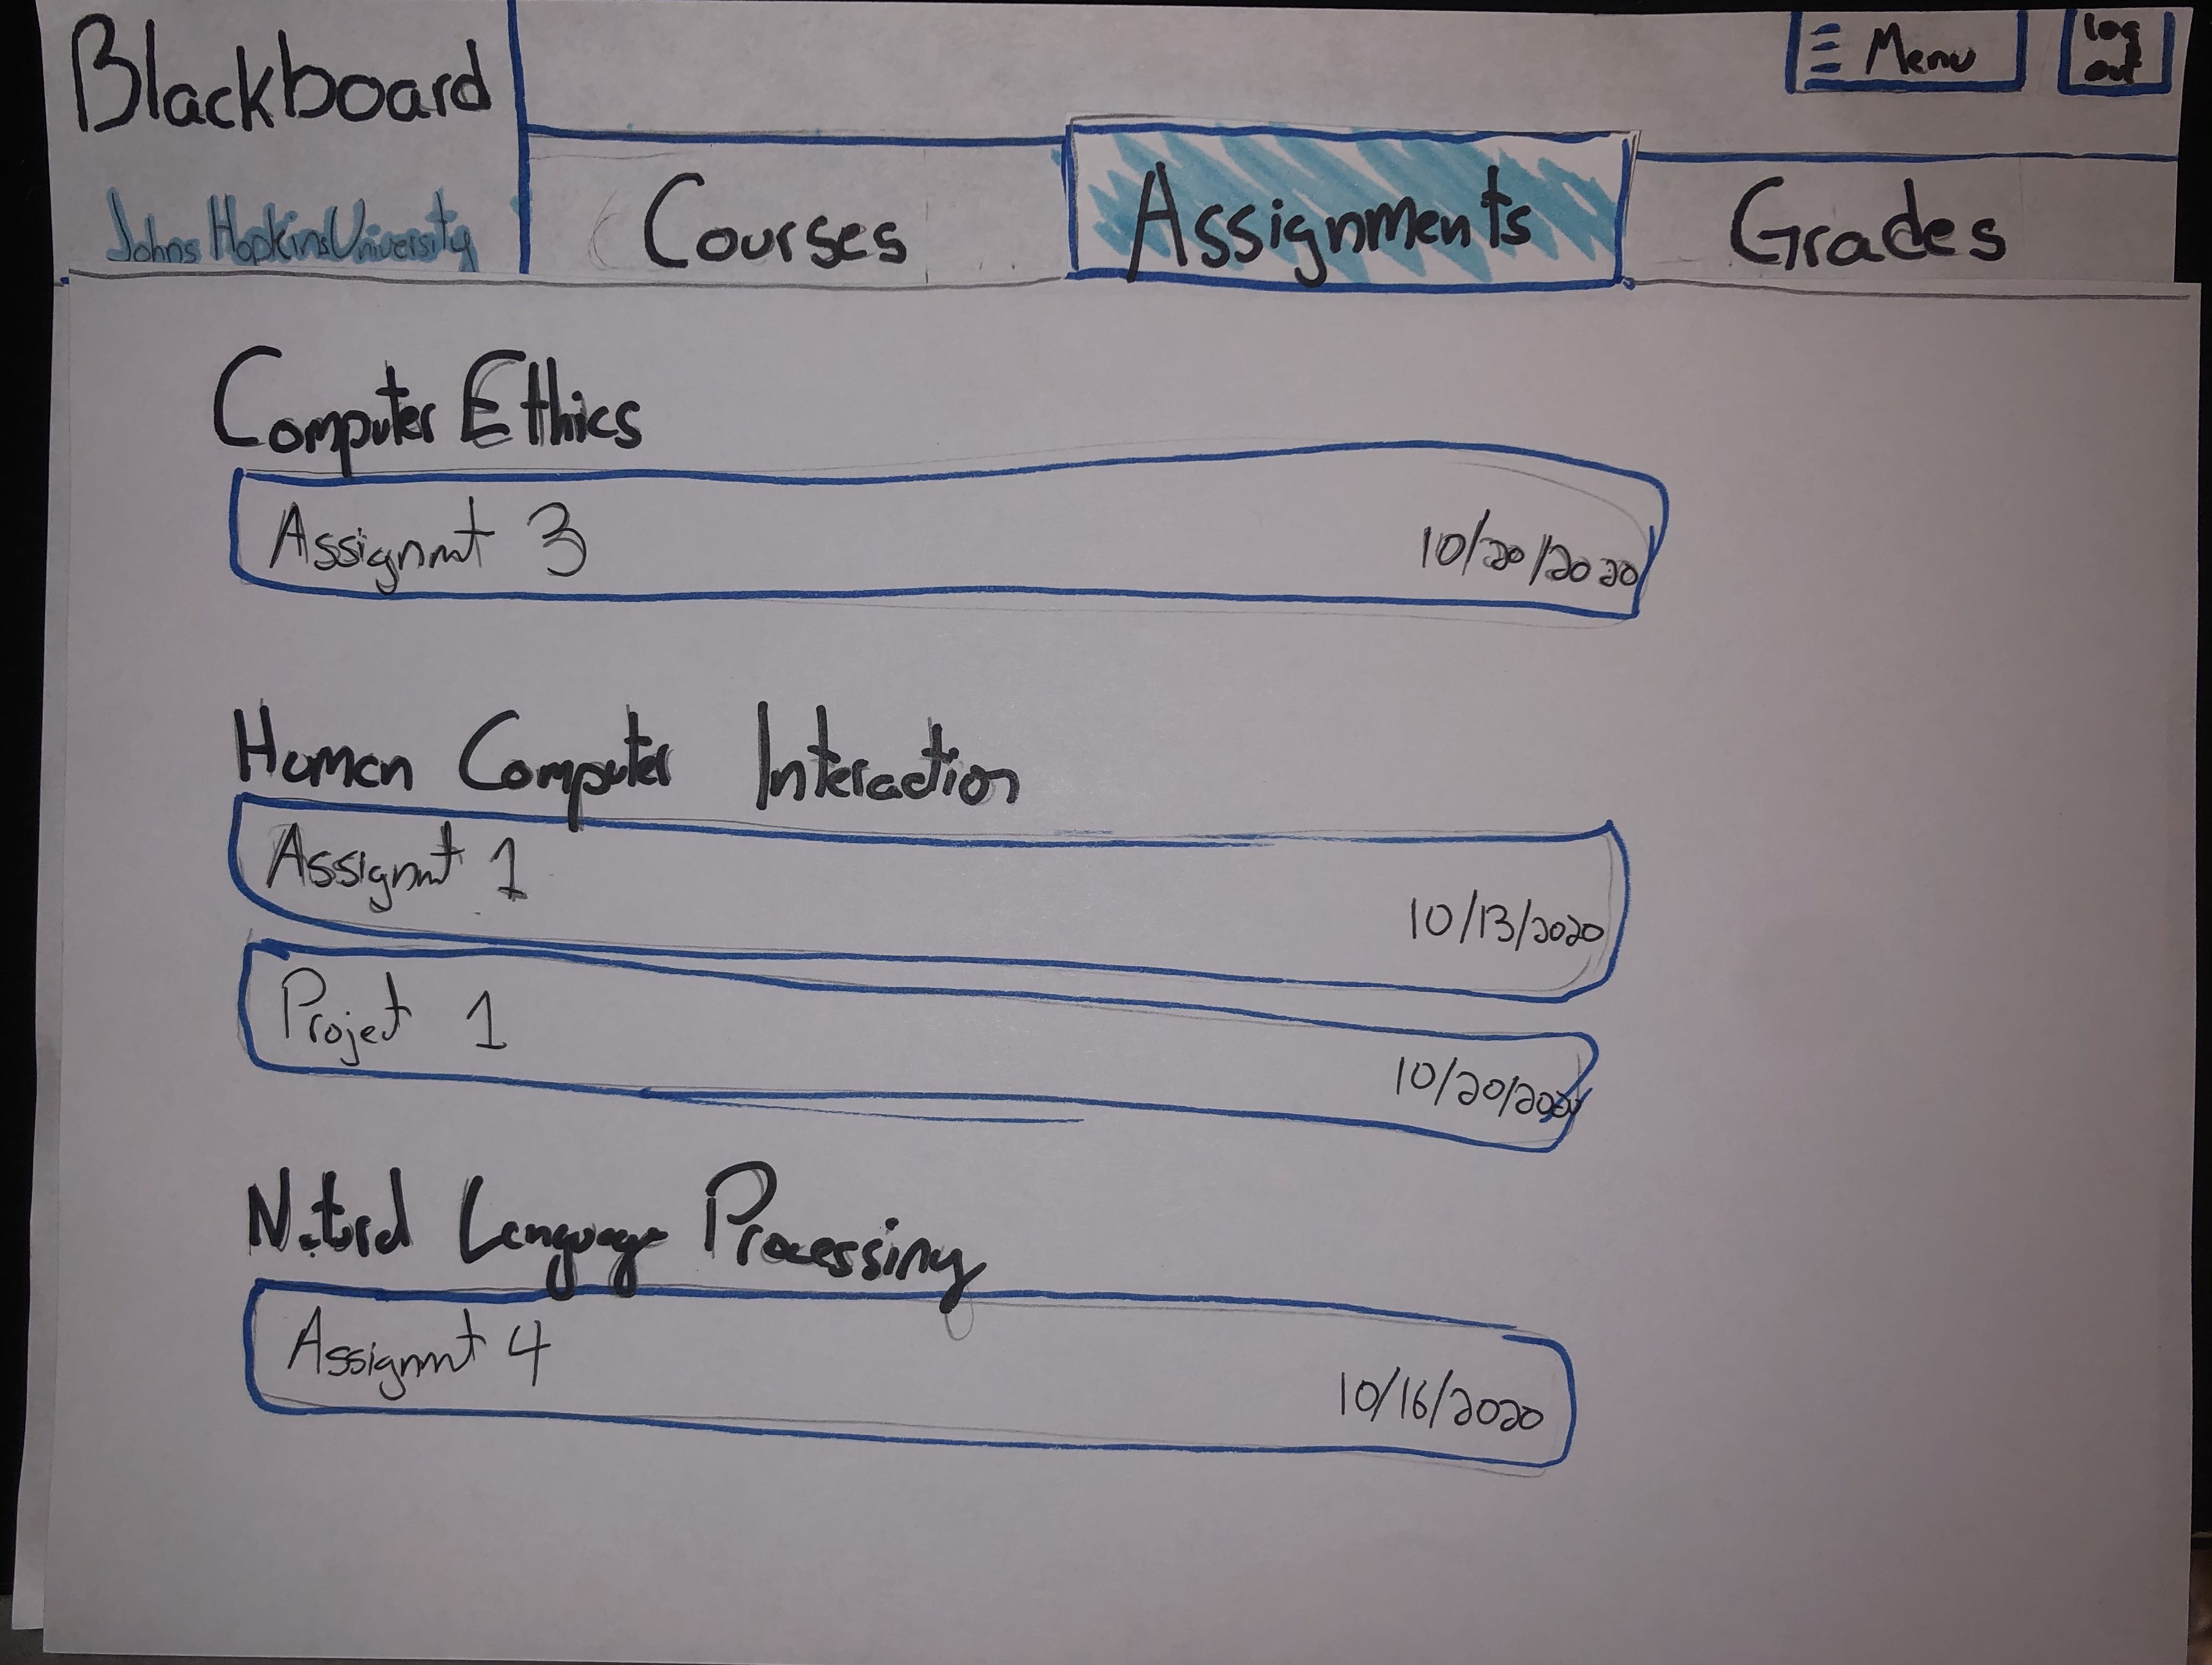 Blackboard
Johns Hopkins University
Menu
Log out
Courses
Assignments
Grades
Computer Ethics
Assignmt 3 10/20/2020
Human Computer Interaction
Assignmt 1 10/13/2020
Projet 1 10/20/2020
Natural Language Processing
Assignmt 4 10/16/2020